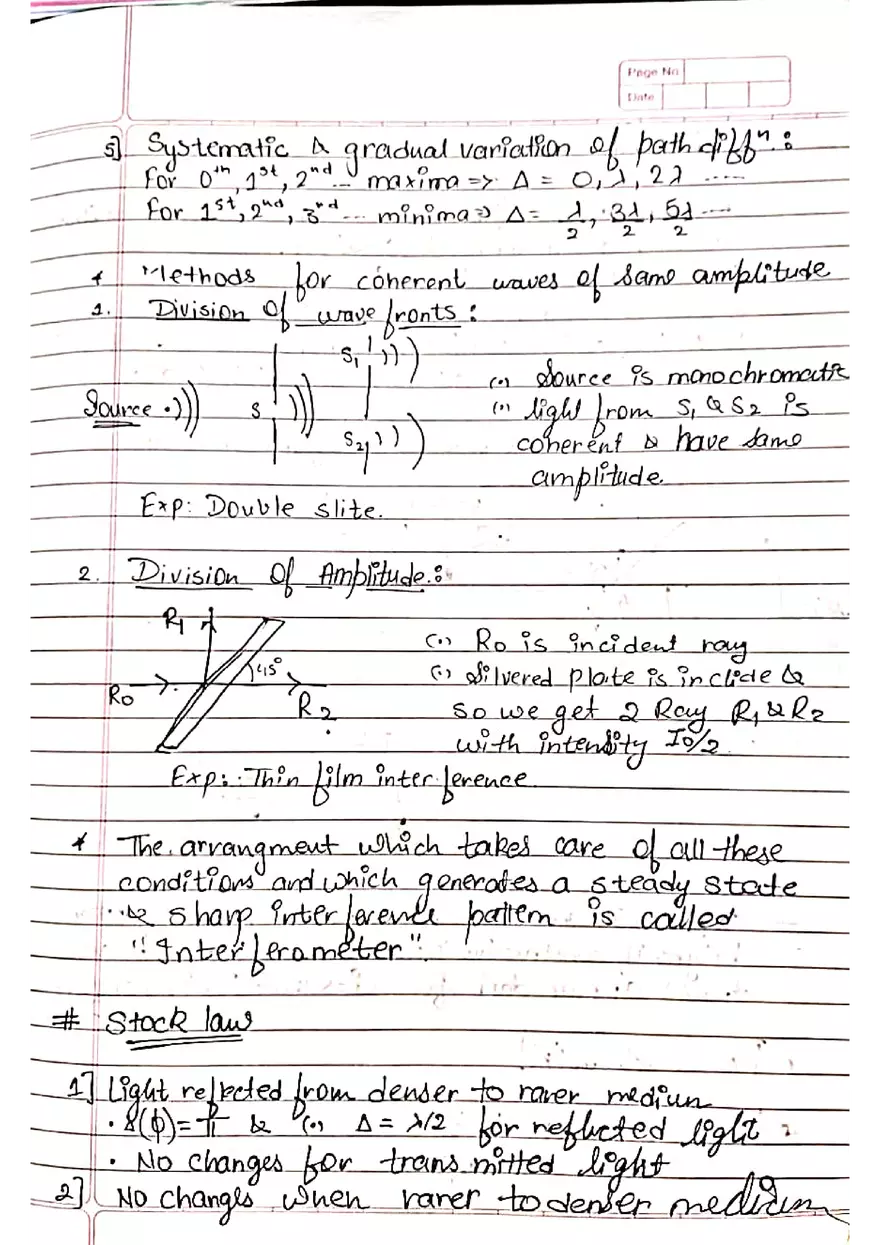 Page No
Date
5] Systematic & gradual variation of path diffⁿ :
For 0th, 1st, 2nd ... maxima => Δ = 0, λ, 2λ .....
For 1st, 2nd, 3rd ... minima => Δ = λ/2, 3λ/2, 5λ/2 ....
* Methods for coherent waves of same amplitude
1. Division Of wave fronts :
S1
(·) Source is monochromatic
Source S
(·) light from S1 & S2 is
S2
coherent & have same
amplitude.
Exp: Double slite.
2. Division Of Amplitude :
R1
(·) Ro is incident ray
45°
(·) Silvered plate is inclide &
Ro R2
so we get 2 Ray R1 & R2
with intensity Io/2
Exp: Thin film interference
* The arrangment which takes care of all these
conditions and which generates a steady state
& sharp interference pattern is called
"Interferometer".
# Stock law
1] Light reflected from denser to rarer mediun
· δ(ϕ) = π & (·) Δ = λ/2 for reflected light
· No changes for transmitted light
2] No changes when rarer to denser medium